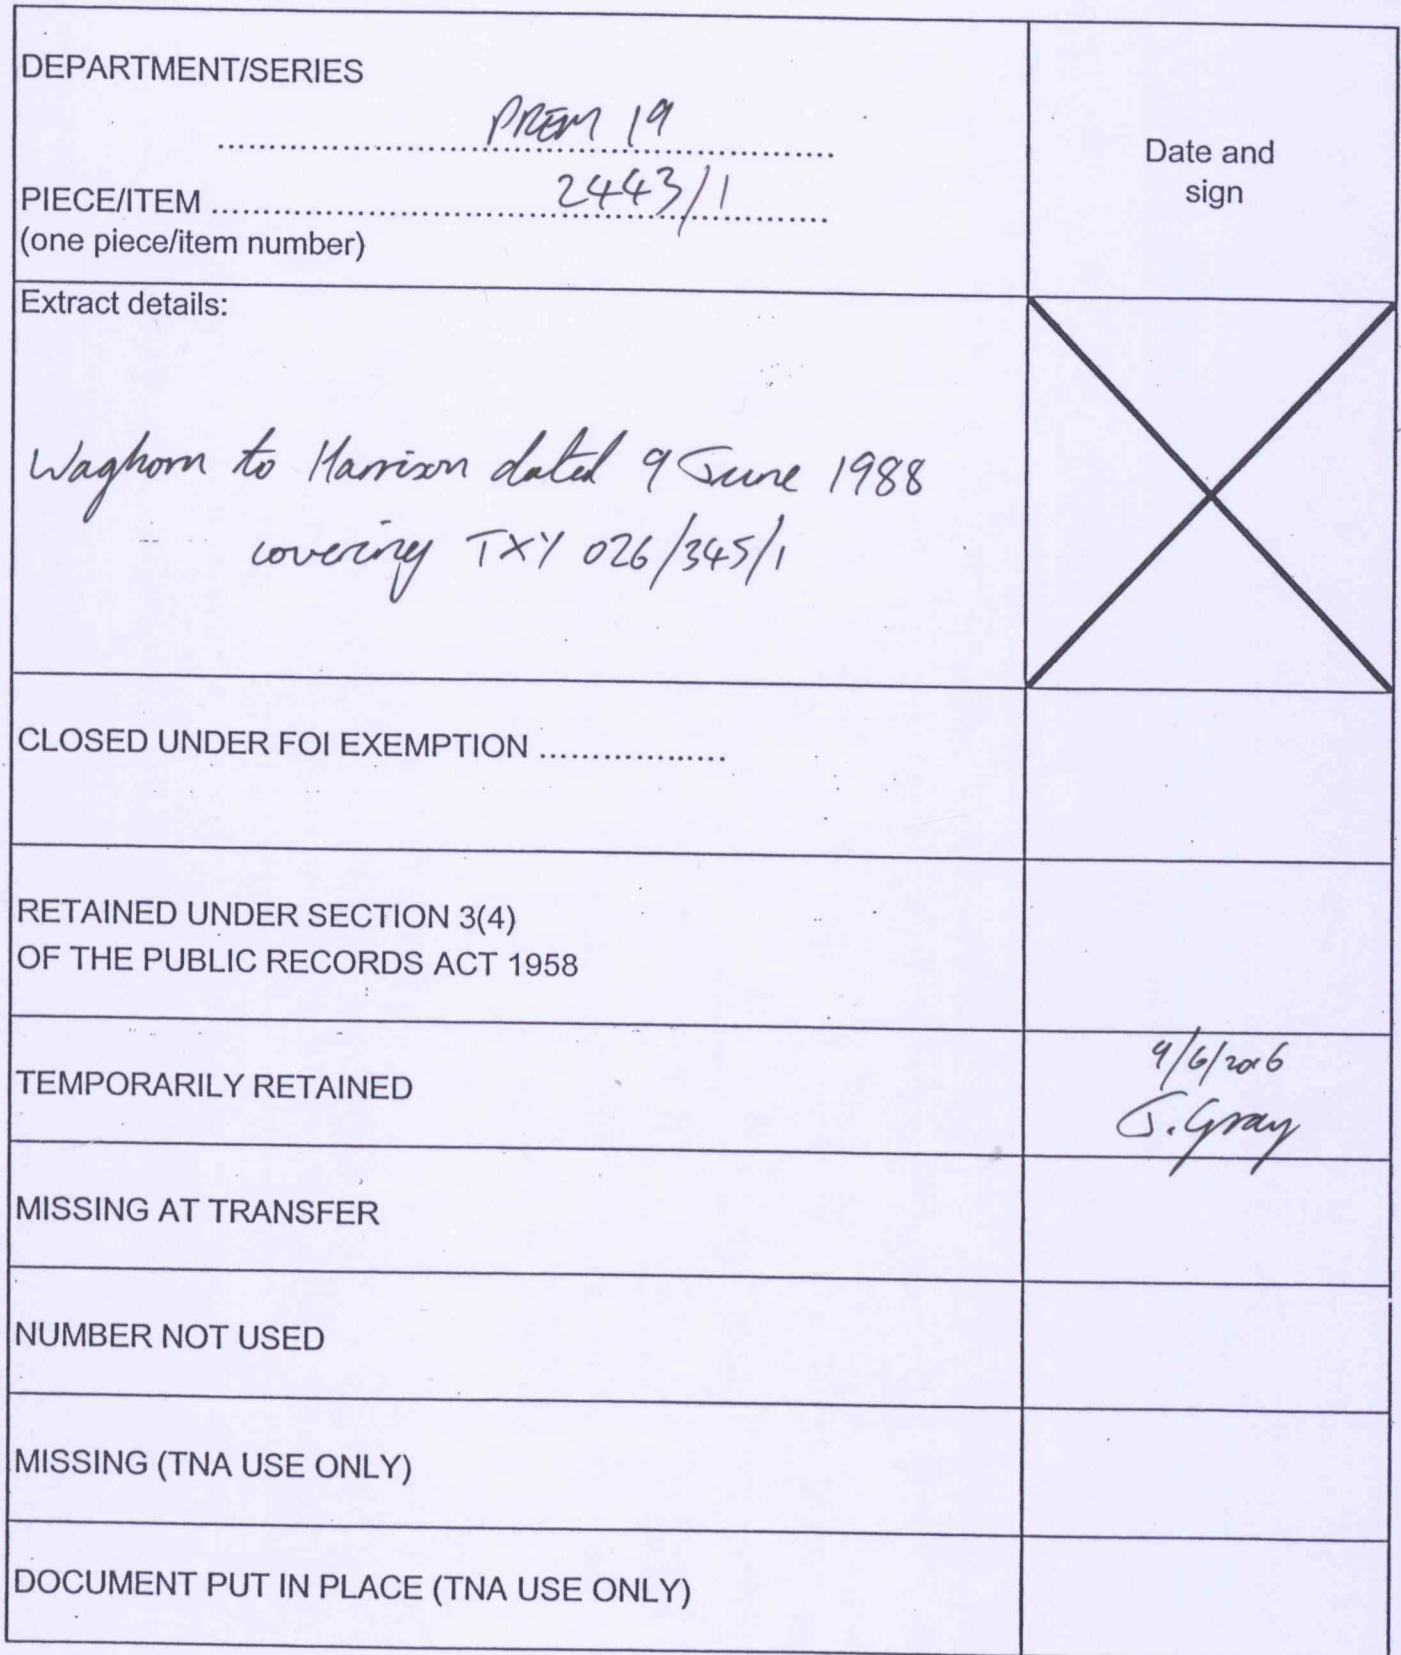 DEPARTMENT/SERIES
PREM 19
Date and
sign
PIECE/ITEM 2443/1
(one piece/item number)
Extract details:
Waghorn to Harrison dated 9 June 1988
covering TXY 026/345/1
CLOSED UNDER FOI EXEMPTION ................
RETAINED UNDER SECTION 3(4)
OF THE PUBLIC RECORDS ACT 1958
TEMPORARILY RETAINED
9/6/2016
J. Gray
MISSING AT TRANSFER
NUMBER NOT USED
MISSING (TNA USE ONLY)
DOCUMENT PUT IN PLACE (TNA USE ONLY)